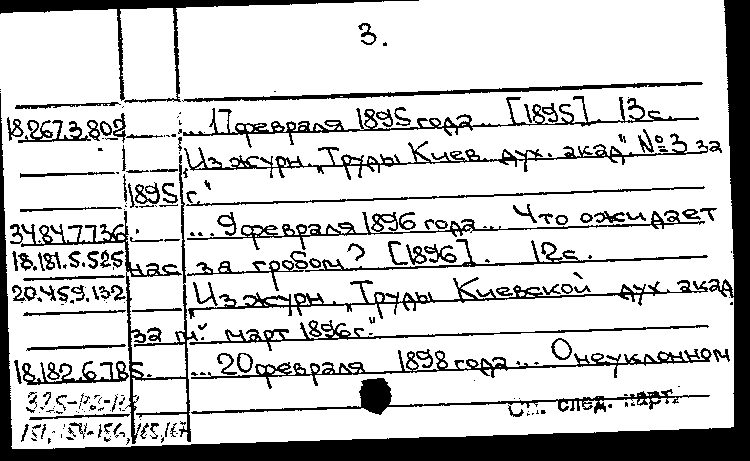 3.
18.267.3.802 ... 17 февраля 1895 года... [1895]. 13с.
"Из журн. "Труды Киев. дух. акад." №3 за
1895 г."
34.84.7.736. ... 9 февраля 1896 года... Что ожидает
18.181.5.525 нас за гробом? [1896]. 12с.
20.459.132 "Из журн. "Труды Киевской дух. акад
за м. март 1896г."
18.182.6.785. ... 20 февраля 1898 года... О неуклонном
См. след. карт.
151,-154-156, 165, 167